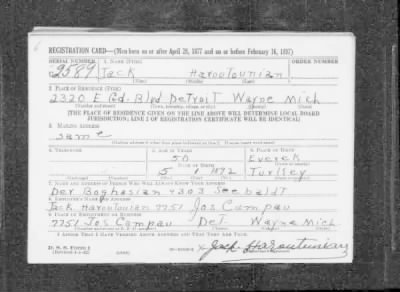 REGISTRATION CARD—(Men born on or after April 28, 1877 and on or before February 16, 1897)
SERIAL NUMBER 1. NAME (Print) ORDER NUMBER
2589 Jack Haroutounian
(First) (Middle) (Last)
2. PLACE OF RESIDENCE (Print)
2320 E Gd. Blvd Detroit Wayne Mich
(Number and street) (Town, township, village, or city) (County) (State)
[THE PLACE OF RESIDENCE GIVEN ON THE LINE ABOVE WILL DETERMINE LOCAL BOARD
JURISDICTION; LINE 2 OF REGISTRATION CERTIFICATE WILL BE IDENTICAL]
3. MAILING ADDRESS
same
4. TELEPHONE 5. AGE IN YEARS 6. PLACE OF BIRTH
50 Everek
DATE OF BIRTH
15 1892 Turkey
7. NAME AND ADDRESS OF PERSON WHO WILL ALWAYS KNOW YOUR ADDRESS
Der Boghosian 4303 Seebaldt
8. EMPLOYER'S NAME AND ADDRESS
Jack Haroutounian 7751 Jos Campau
9. PLACE OF EMPLOYMENT OR BUSINESS
7751 Jos Campau Det. Wayne Mich
(Number and street or R. F. D. number) (Town) (County) (State)
I AFFIRM THAT I HAVE VERIFIED ABOVE ANSWERS AND THAT THEY ARE TRUE.
D. S. S. Form 1
(Revised 4-1-42) (over) x Jack Haroutunian